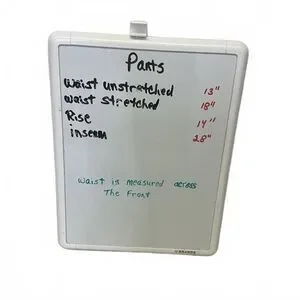 Pants
Waist unstretched 13"
waist stretched 18"
Rise 14"
inseam 28"
Waist is measured across
The Front